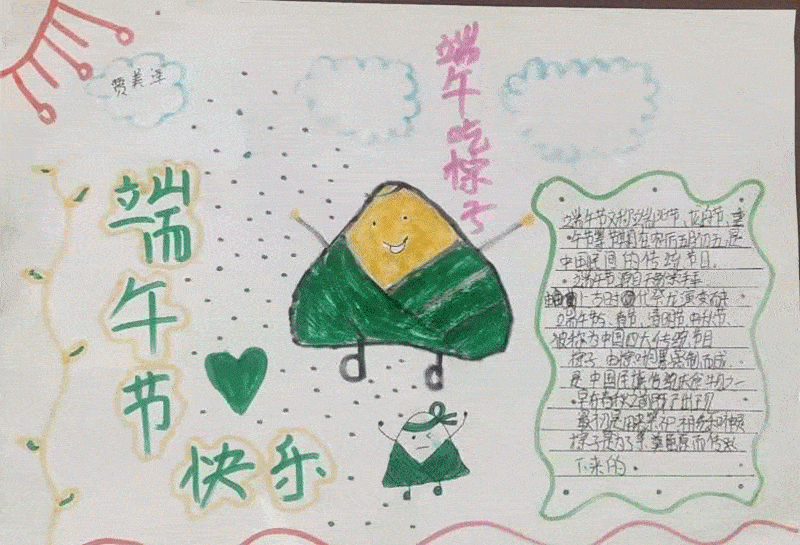 贾美泽
端午节
快乐
端午吃粽子
端午节又称端阳节、
午节等节期在农历五月初五,是
中国民间的传统节日.
端午节源自
上古时代祭龙演变而来
端午节与春节、清明节、中秋节
被称为中国四大传统节日
粽子由粽叶包裹蒸制而成.
是中国民族传统
早在春秋之前既已出现
最初是用来祭祀祖先和神灵
粽子是为了 屈原而传承
下来的.